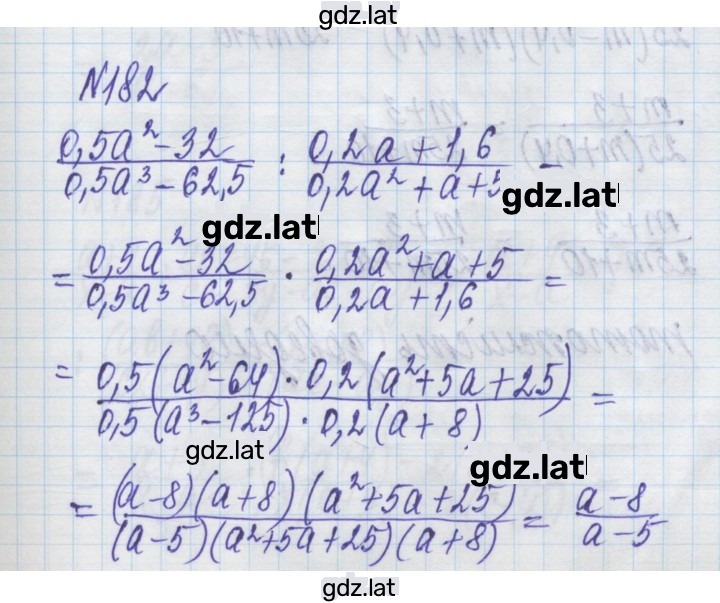 gdz.lat
№182
(0,5a² − 32)/(0,5a³ − 62,5) : (0,2a + 1,6)/(0,2a² + a + 5) =
gdz.lat
gdz.lat
= (0,5a² − 32)/(0,5a³ − 62,5) · (0,2a² + a + 5)/(0,2a + 1,6) =
gdz.lat
= (0,5(a² − 64) · 0,2(a² + 5a + 25))/(0,5(a³ − 125) · 0,2(a + 8)) =
gdz.lat
gdz.lat
= ((a − 8)(a + 8)(a² + 5a + 25))/((a − 5)(a² + 5a + 25)(a + 8)) = (a − 8)/(a − 5)
gdz.lat